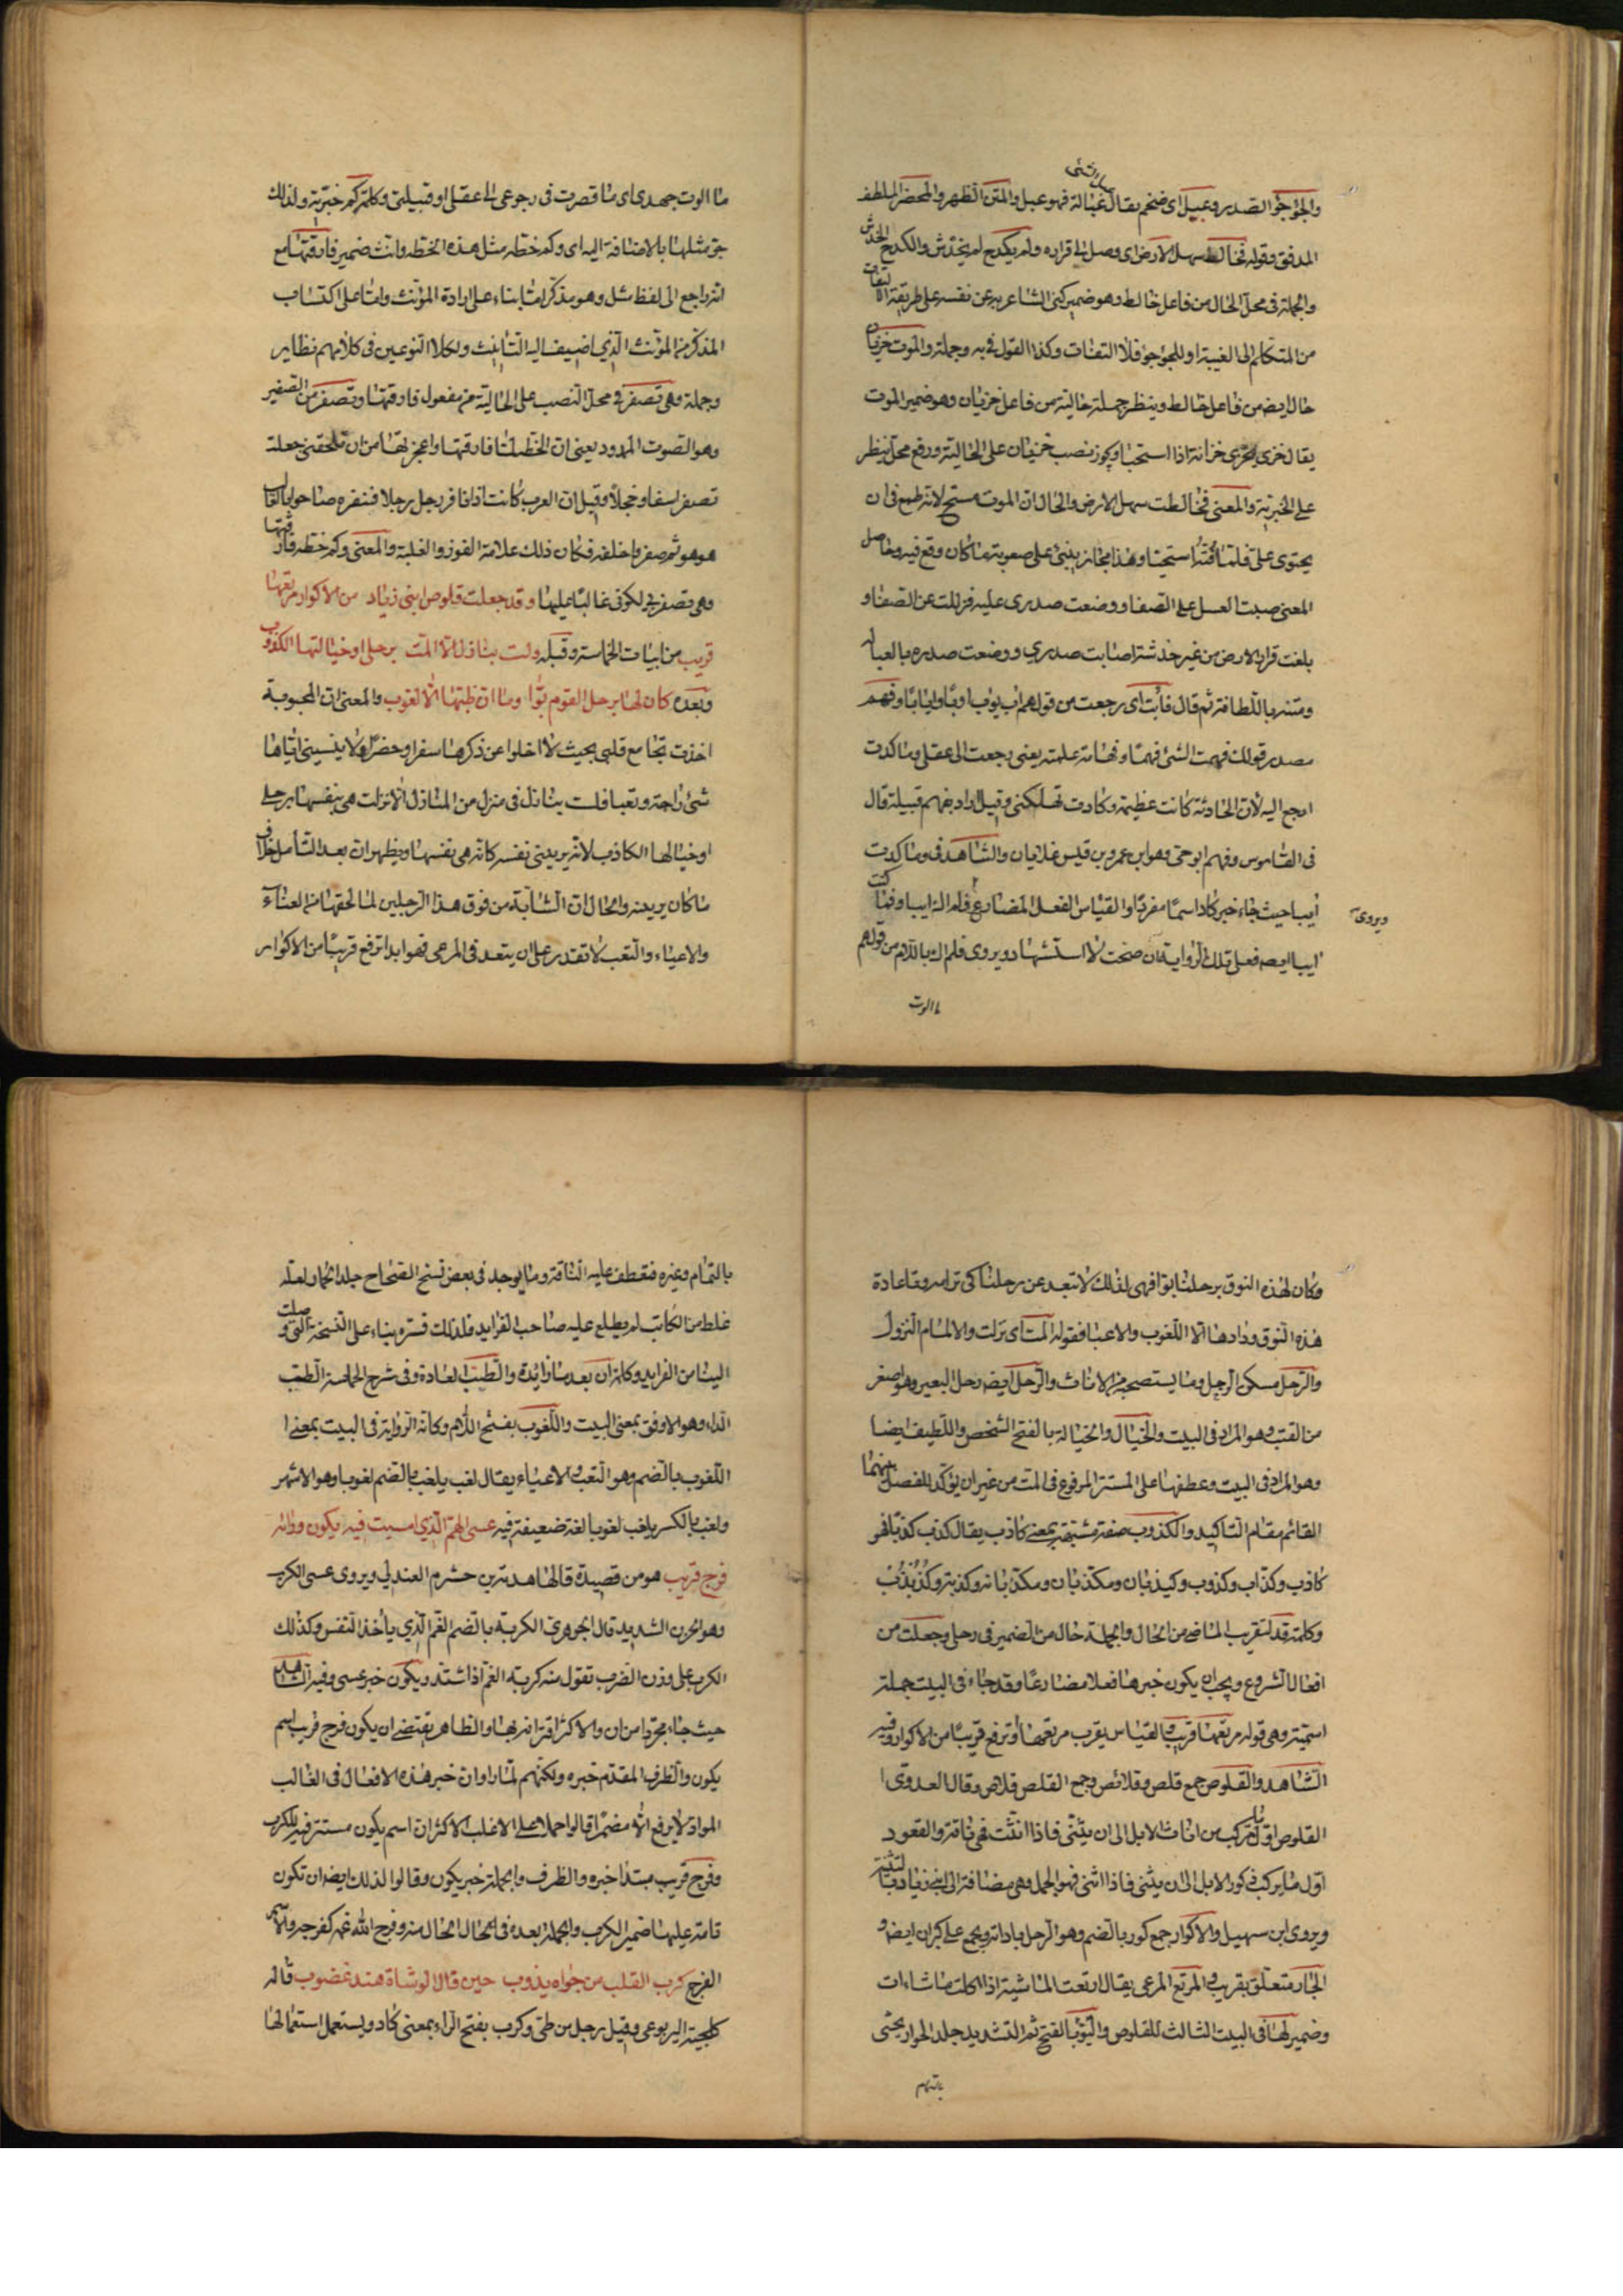 والجؤجؤ الصدر وعبيل اى ضخم يقال عبل عبالة فهو عبل والمتن الظهر والمخصر الملطف
المدقق وقوله فخالط سهل الارض اى وصل الى قراره ولم يكدح لم يخدش والكدح الخدش
والجملة فى محل الحال من فاعل خالط وهو ضمير كنى الشاعر به عن نفسه على طريقة الالتفات
من المتكلم الى الغيبة او للجؤجؤ فلا التفات وكذا القول فى به وجملة والموت خزيان
حال ايضا من فاعل خالط وينظر جملة حالية من فاعل خزيان وهو ضمير الموت
يقال خزى يخزى خزاية اذا استحيا ويجوز نصب خزيان على الحالية ورفع محل ينظر
على الخبرية والمعنى فخالطت سهل الارض والحال ان الموت مستحى لانه طمع فى ان
يحتوى على فلما فته استحيا وهذا مجاز ينبئ على صعوبة ما كان وقع فيه وحاصل
المعنى صببت العسل على الصفا ووضعت صدرى عليه فزللت عن الصفا و
بلغت قرار الارض من غير خدشة اصابت صدرى ووضعت صدره بالعبالة
ومتنه باللطافة ثم قال فابت اى رجعت من قولهم اب يؤب اوبا وايابا وفهم
مصدر قولك فهمت الشئ فهما وفهامة علمته يعنى رجعت الى عقلى وما كدت
ارجع اليه لان الحادثة كانت عظيمة وكادت تهلكنى وقيل اراد بفهم قبيلة قال
فى القاموس وفهم ابو حى وهو ابن عمرو بن قيس غلايان والشاهد فى وما كدت
ايبا حيث جاء خبر كاد اسما مفردا والقياس الفعل المضارع ويروى فلم اك ايبا وما كنت
ايبا ايضا فعلى تلك الرواية ان صحت لا استشهاد ويروى فلم ال باللام من قولهم
ما الوت
ما الوت جهدى اى ما قصرت فى رجوعى الى عقلى او قبيلتى وكلمة كم خبرية ولذلك
جر مثلها بالاضافة اليه اى وكم خطة مثل هذه الخطة وانث ضمير فارقتها مع
انه راجع الى لفظ مثل وهو مذكر اما بناء على ارادة المؤنث واما على اكتساب
المذكر من المؤنث الذي اضيف اليه التانيث ولكلا النوعين فى كلامهم نظاير
وجملة وهى تصفر فى محل النصب على الحالية من مفعول فارقتها وتصفر من الصفير
وهو الصوت الممدود يعنى ان الخطة لما فارقتها واعجزتها من ان تلحقنى جعلت
تصفر اسفا وخجلا وقيل ان العرب كانت اذا نافر رجل رجلا فنفره صاحوا بالغالب
هو هو ثم صفروا خلفه فكان ذلك علامة الفوز والغلبة والمعنى وكم خطة فارقتها
وهى تصفر بى لكونى غالبا عليها وقد جعلت قلوص ابنى زياد من الاكوار مرتعها
قريب من ابيات الحماسة وقبله ولست بنازل الا المت برحلى او خيالتها الكذوب
وبعده كان لها برحل القوم بوا وما ان طبها الا اللغوب والمعنى ان المحبوبة
اخذت بمجامع قلبى بحيث لا اخلو عن ذكرها سفرا وحضرا ولا ينسينى اياها
شئ راحة وتعبا فلست بنازل فى منزل من المنازل الا نزلت هى بنفسها برحلى
او خيالها الكاذب لانه يريني نفسه كانه هى نفسها ويظهر ان بعد التامل خلاف
ما كان يريه والحال ان الشابة من فوق هذا الرجلين لما لحقها من العناء
والاعياء والتعب لا تقدر على ان يبتعد فى المرعى فهو ابدا ترفع قريبا من الاكوار
وكان لهذه النوق برحلنا بوا فهى لذلك لا تبعد عن رحلنا كى ترامه وما عادة
هذه النوق وداءها الا اللغوب والاعيا فقوله المت اى نزلت والالمام النزول
والرحل مسكن الرجل وما يستصحبه من الاثاث والرحل ايضا رحل البعير وهو اصغر
من القتب وهو المراد فى البيت والخيال والخيالة بالفتح الشخص والطيف ايضا
وهو المراد فى البيت وعطفها على المستتر المرفوع فى المت من غير ان يؤكد للفصل بينهما
القائم مقام التاكيد والكذوب صفة مشبهة بمعنى كاذب يقال كذب كذبا فهو
كاذب وكذاب وكذوب وكيذبان ومكذبان ومكذبانة وكذبة وكذبذب
وكلمة قد لتقريب الماضى من الحال والجملة حال من الضمير فى رحلى وجعلت من
افعال الشروع ويجب ان يكون خبرها فعلا مضارعا وقد جاء فى البيت جملة
اسمية وهى قوله مرتعها قريب والقياس يقرب مرتعها او ترفع قريبا من الاكوار وفيه
الشاهد والقلوص جمع قلص وقلائص وجمع القلص قلاص وقال العدوى
القلوص اول ما يركب من اناث الابل الى ان يثنى فاذا اثنت فهى ناقة والقعود
اول ما يركب فى ذكور الابل الى ان يثنى فاذا اثنى فهو الجمل وهى مضافة الى ابنى زياد بالتثنية
ويروى ابن سهيل والاكوار جمع كور بالضم وهو الرحل باداته ويجمع على كيران ايضا و
الجار متعلق بقريب والمرتع المرعى يقال ارتعت الماشية اذا اكلت ما شاءت
وضمير لها فى البيت الثالث للقلوص والبو بالفتح ثم التشديد جلد الحوار يحشى
بالتمام وغيره فتعطف عليه الناقة وما يوجد فى بعض نسخ الصحاح جلد الحمار لعله
غلط من الكاتب لم يطلع عليه صاحب الفرايد فلذلك فسره بناء على النسخة التى وصلت
الينا من الفرايد وكلمة ان بعد ما زائدة والطب العادة وفى شرح الحماسة الطب
الداء وهو الاوفق بمعنى البيت واللغوب بفتح اللام وكانه الرواية فى البيت بمعنى
اللغوب بالضم وهو التعب والاعياء يقال لغب يلغب بالضم لغوبا وهو الاشهر
ولغب بالكسر يلغب لغوبا لغة ضعيفة فيه عسى الهم الذي امسيت فيه يكون وراءه
فرج قريب هو من قصيدة قالها هدبة بن خشرم العذرى ويروى عسى الكرب
وهو الحزن الشديد قال الجوهرى الكربة بالضم الغم الذي ياخذ النفس وكذلك
الكرب على وزن الضرب تقول منه كربه الغم اذا اشتد ويكون خبر عسى وفيه الشاهد
حيث جاء مجردا من ان والاكثر اقترانه بها والظاهر يقتضى ان يكون فرج قريب اسم
يكون والظرف المقدم خبره ولكنهم لما راوا ان خبر هذه الافعال فى الغالب
المواد لا يرفع الا مضمرا قالوا حملا على الاغلب الاكثر ان اسم يكون مستتر فيه للكرب
وفرج قريب مبتدا خبره والظرف والجملة خبر يكون وقالوا لذلك ايضا ان تكون
تامة عليها ضمير الكرب والجملة بعده فى الحال الحال منه وفرج الله غمه كفرجه والاسم
الفرج كرب القلب من جواه يذوب حين قال الوشاة هند غضوب قاله
كلحبة اليربوعى وقيل رجل من طى وكرب بفتح الراء بمعنى كاد ويستعمل استعمالها